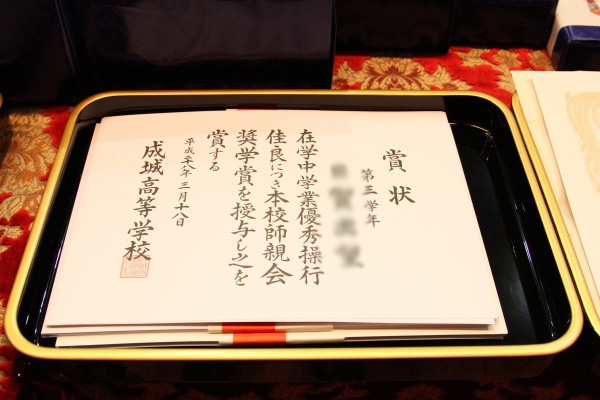 賞状
第三学年
在学中学業優秀操行
佳良につき本校師親会
奨学賞を授与し之を
賞する
平成二十八年三月十八日
成城高等学校